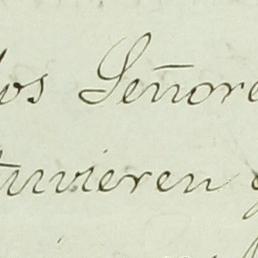 los Señore
tuvieren